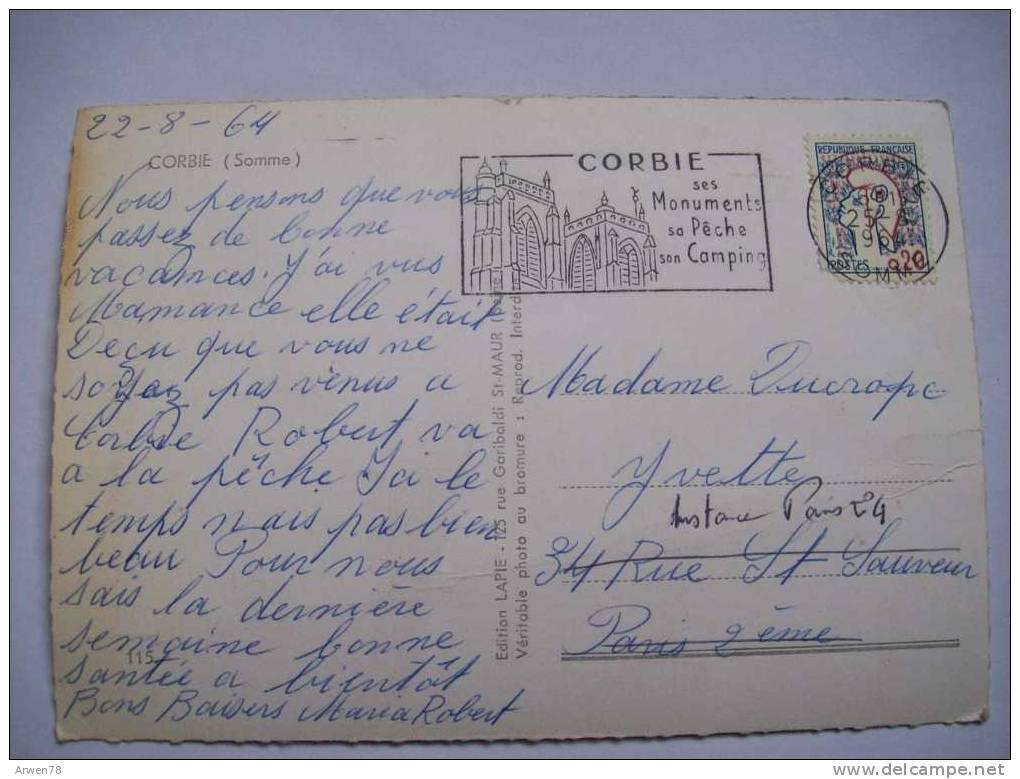 22-8-64
CORBIE (Somme)
Nous pensons que vous
passez de bonne
vacances. J'ai vus
Mamance elle était
Deçu que vous ne
soyez pas venus a
Corbie Robert va
a la pêche Ici le
temps n'ais pas bien
beau Pour nous
sais la dernière
semaine bonne
santée a bientôt
Bons Baisers Maria Robert
115
Edition LAPIE - 125 rue Garibaldi St-MAUR
Véritable photo au bromure : Reprod. Interdite
CORBIE
ses
Monuments
sa Pêche
son Camping
REPUBLIQUE FRANÇAISE
POSTES 0,20
CORBIE
25-8
1964
SOMME
Madame Ducrope
Yvette
Instance Paris 24
34 Rue St Sauveur
Paris 2ème
Arwen78
www.delcampe.net